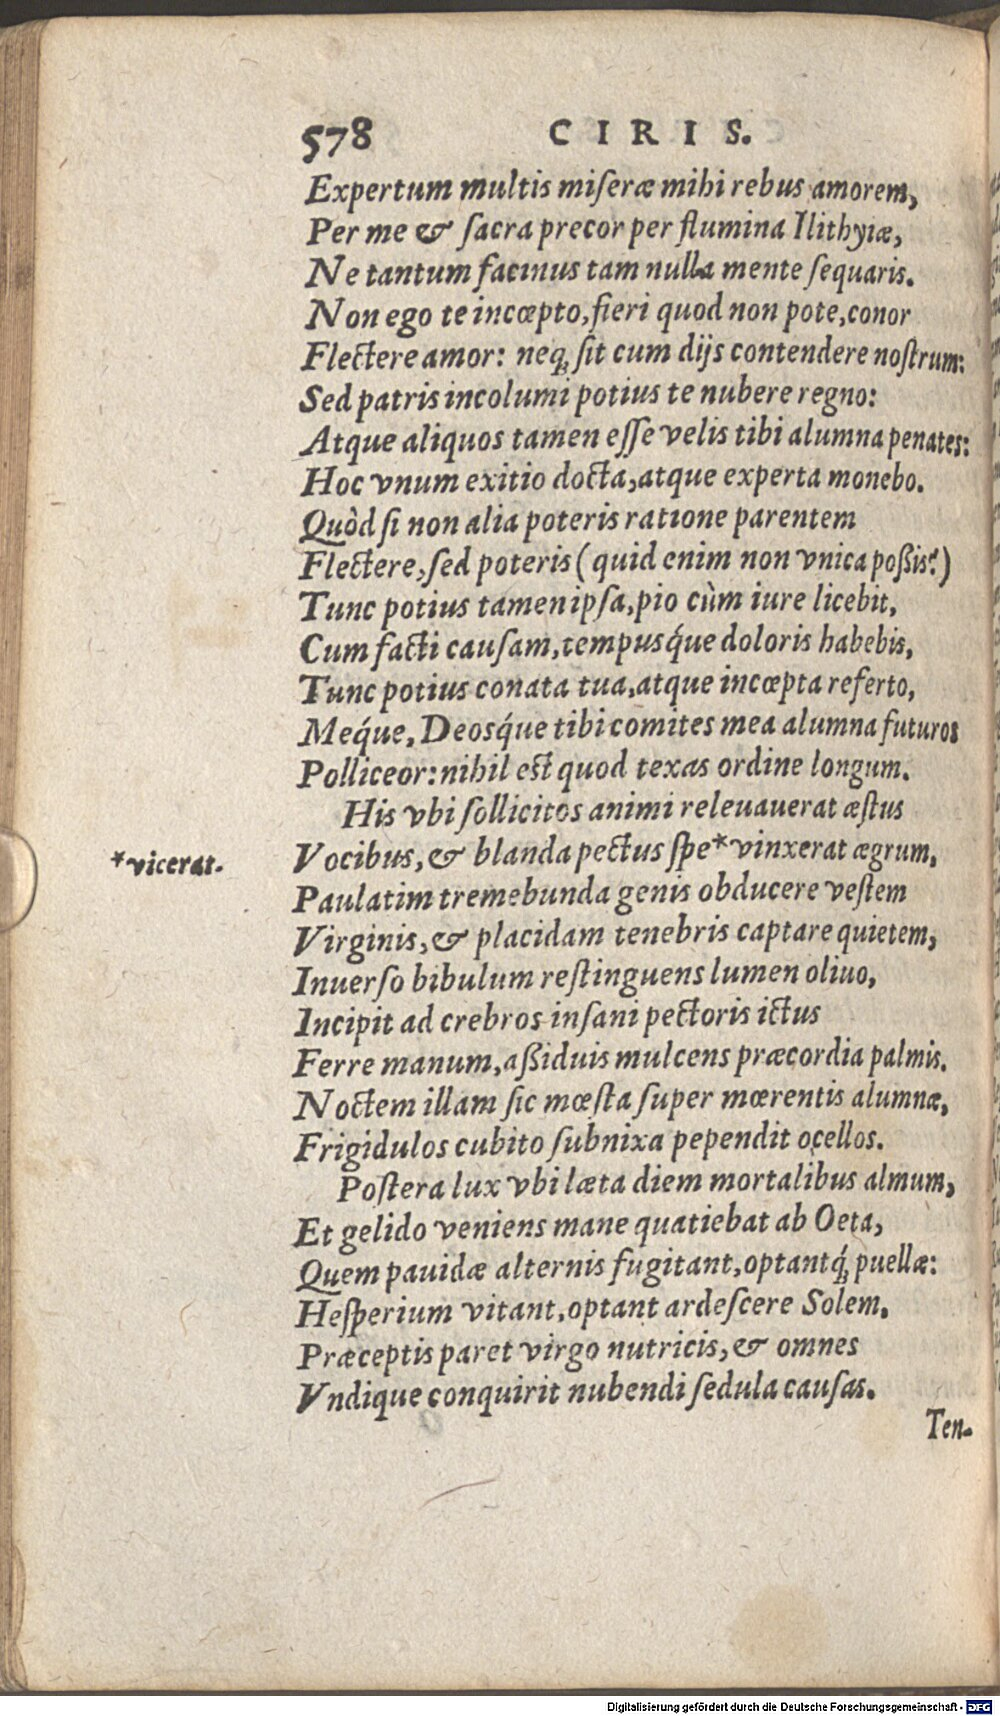 578 CIRIS.
Expertum multis miſeræ mihi rebus amorem,
Per me & ſacra precor per flumina Ilithyiæ,
Ne tantum facinus tam nulla mente ſequaris.
Non ego te incœpto, fieri quod non pote, conor
Flectere amor: neq; ſit cum dijs contendere noſtrum:
Sed patris incolumi potius te nubere regno:
Atque aliquos tamen eſſe velis tibi alumna penates:
Hoc vnum exitio docta, atque experta monebo.
Quòd ſi non alia poteris ratione parentem
Flectere, ſed poteris (quid enim non vnica poßis?)
Tunc potius tamen ipſa, pio cùm iure licebit,
Cum facti cauſam, tempusq́ue doloris habebis,
Tunc potius conata tua, atque incœpta referto,
Meq́ue, Deosq́ue tibi comites mea alumna futuros
Polliceor: nihil est quod texas ordine longum.
His vbi ſollicitos animi releuauerat æſtus
Vocibus, & blanda pectus ſpe*vinxerat ægrum,
*vicerat.
Paulatim tremebunda genis obducere veſtem
Virginis, & placidam tenebris captare quietem,
Inuerſo bibulum reſtinguens lumen oliuo,
Incipit ad crebros inſani pectoris ictus
Ferre manum, aßiduis mulcens præcordia palmis.
Noctem illam ſic mœſta ſuper mœrentis alumnæ,
Frigidulos cubito ſubnixa pependit ocellos.
Poſtera lux vbi læta diem mortalibus almum,
Et gelido veniens mane quatiebat ab Oeta,
Quem pauidæ alternis fugitant, optantq́; puellæ:
Heſperium vitant, optant ardeſcere Solem.
Præceptis paret virgo nutricis, & omnes
Vndique conquirit nubendi ſedula cauſas.
Ten-
Digitalisierung gefördert durch die Deutsche Forschungsgemeinschaft - DFG